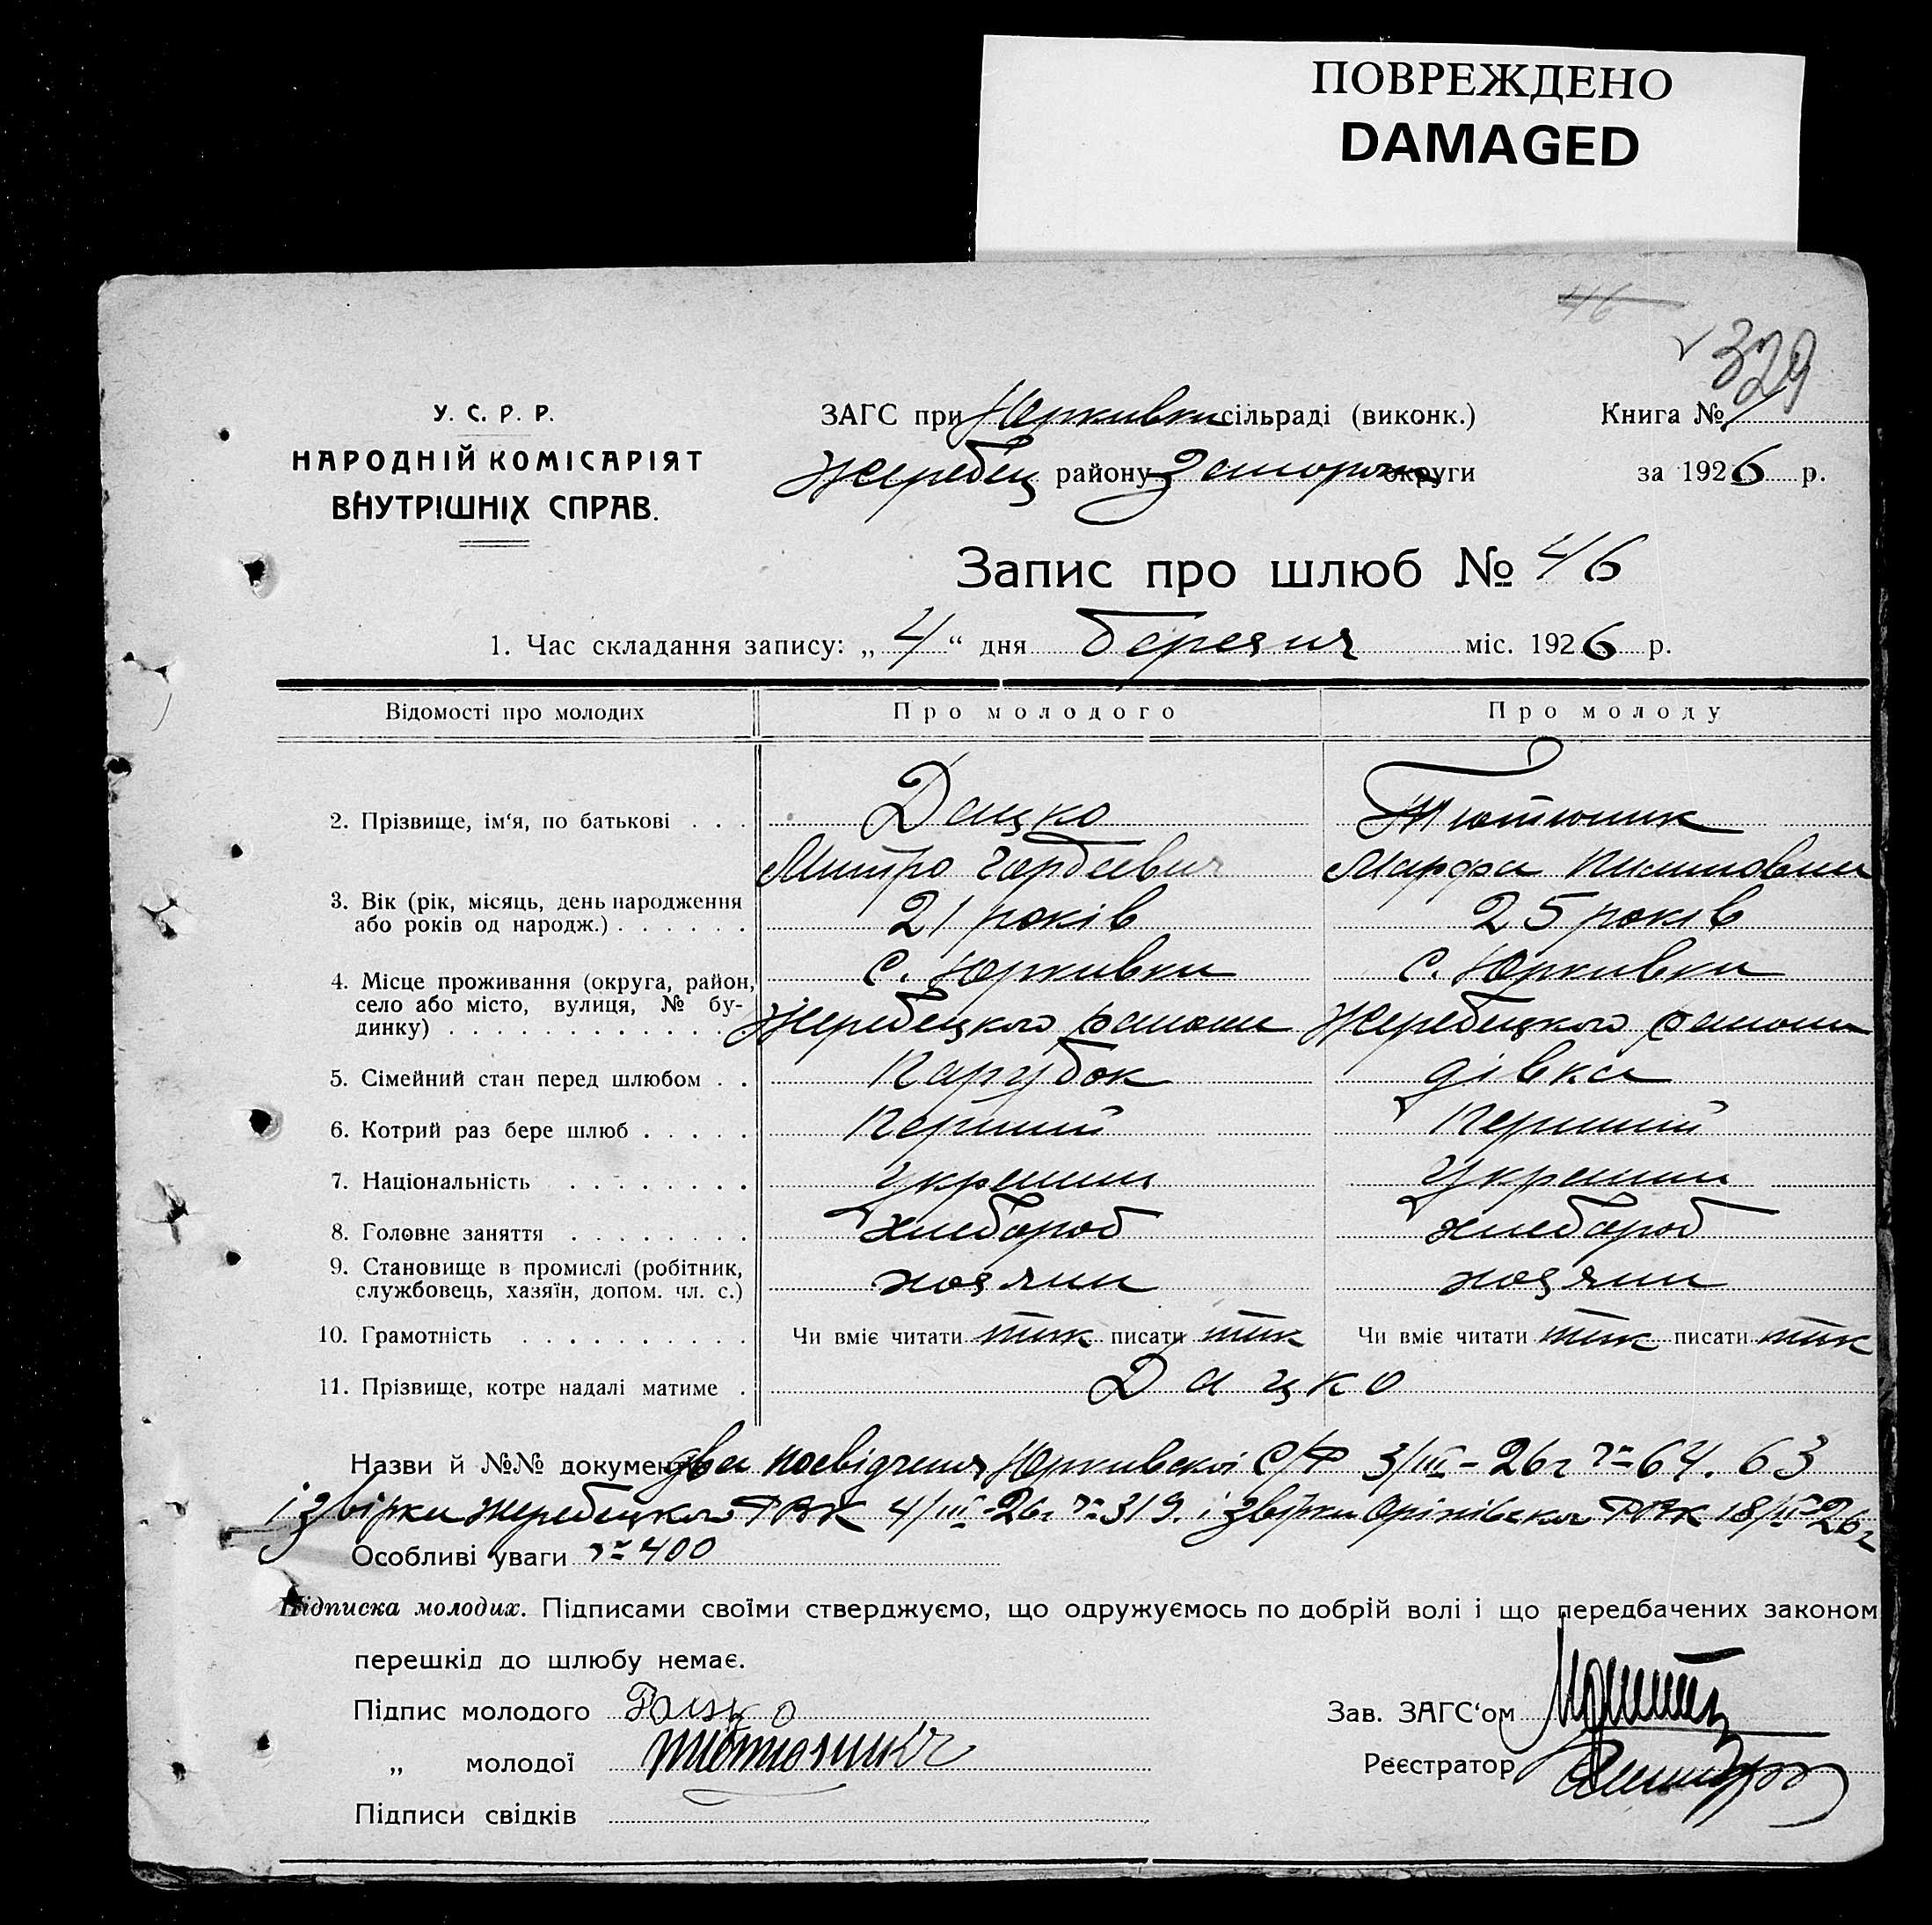 ПОВРЕЖДЕНО
DAMAGED
46
329
У. С. Р. Р.
НАРОДНІЙ КОМІСАРІЯТ
ВНУТРІШНІХ СПРАВ.
ЗАГС при Юркивки сільраді (виконк.) Книга № 1
Жеребец району Запорож округи за 1926 р.
Запис про шлюб № 46
1. Час складання запису: „ 4 “ дня березня міс. 1926 р.
Відомості про молодих Про молодого Про молоду
2. Прізвище, ім‘я, по батькові . . . Дацко Тютюник
Митро Гордеевич Марфа Пилиповна
3. Вік (рік, місяць, день народження
або років од народж.) . . . . . . 21 років 25 років
4. Місце проживання (округа, район, с. Юркивки с. Юркивки
село або місто, вулиця, № бу-
динку) . . . . . . . . . . . . Жеребецкого району Жеребецкого району
5. Сімейний стан перед шлюбом . . Парубок дівка
6. Котрий раз бере шлюб . . . . . Перший Перший
7. Національність . . . . . . . . Украин Украин
8. Головне заняття . . . . . . . . хлебороб хлебороб
9. Становище в промислі (робітник,
службовець, хазяїн, допом. чл. с.) хозяин хозяин
10. Грамотність . . . . . . . . . . Чи вміє читати так писати так Чи вміє читати так писати так
11. Прізвище, котре надалі матиме . Дацко
Назви й №№ документів два посвідчення Юркивскої С/Р 3/III-26г № 64. 63
і звірки Жеребецкого РВК 4/III-26г № 319. і звірки Оріхівского РВК 18/III 26г
Особливі уваги № 400
Підписка молодих. Підписами своїми стверджуємо, що одружуємось по добрій волі і що передбачених законом
перешкід до шлюбу немає.
Підпис молодого Дацко Зав. ЗАГС‘ом
„ молодої Тютюник Реєстратор
Підписи свідків